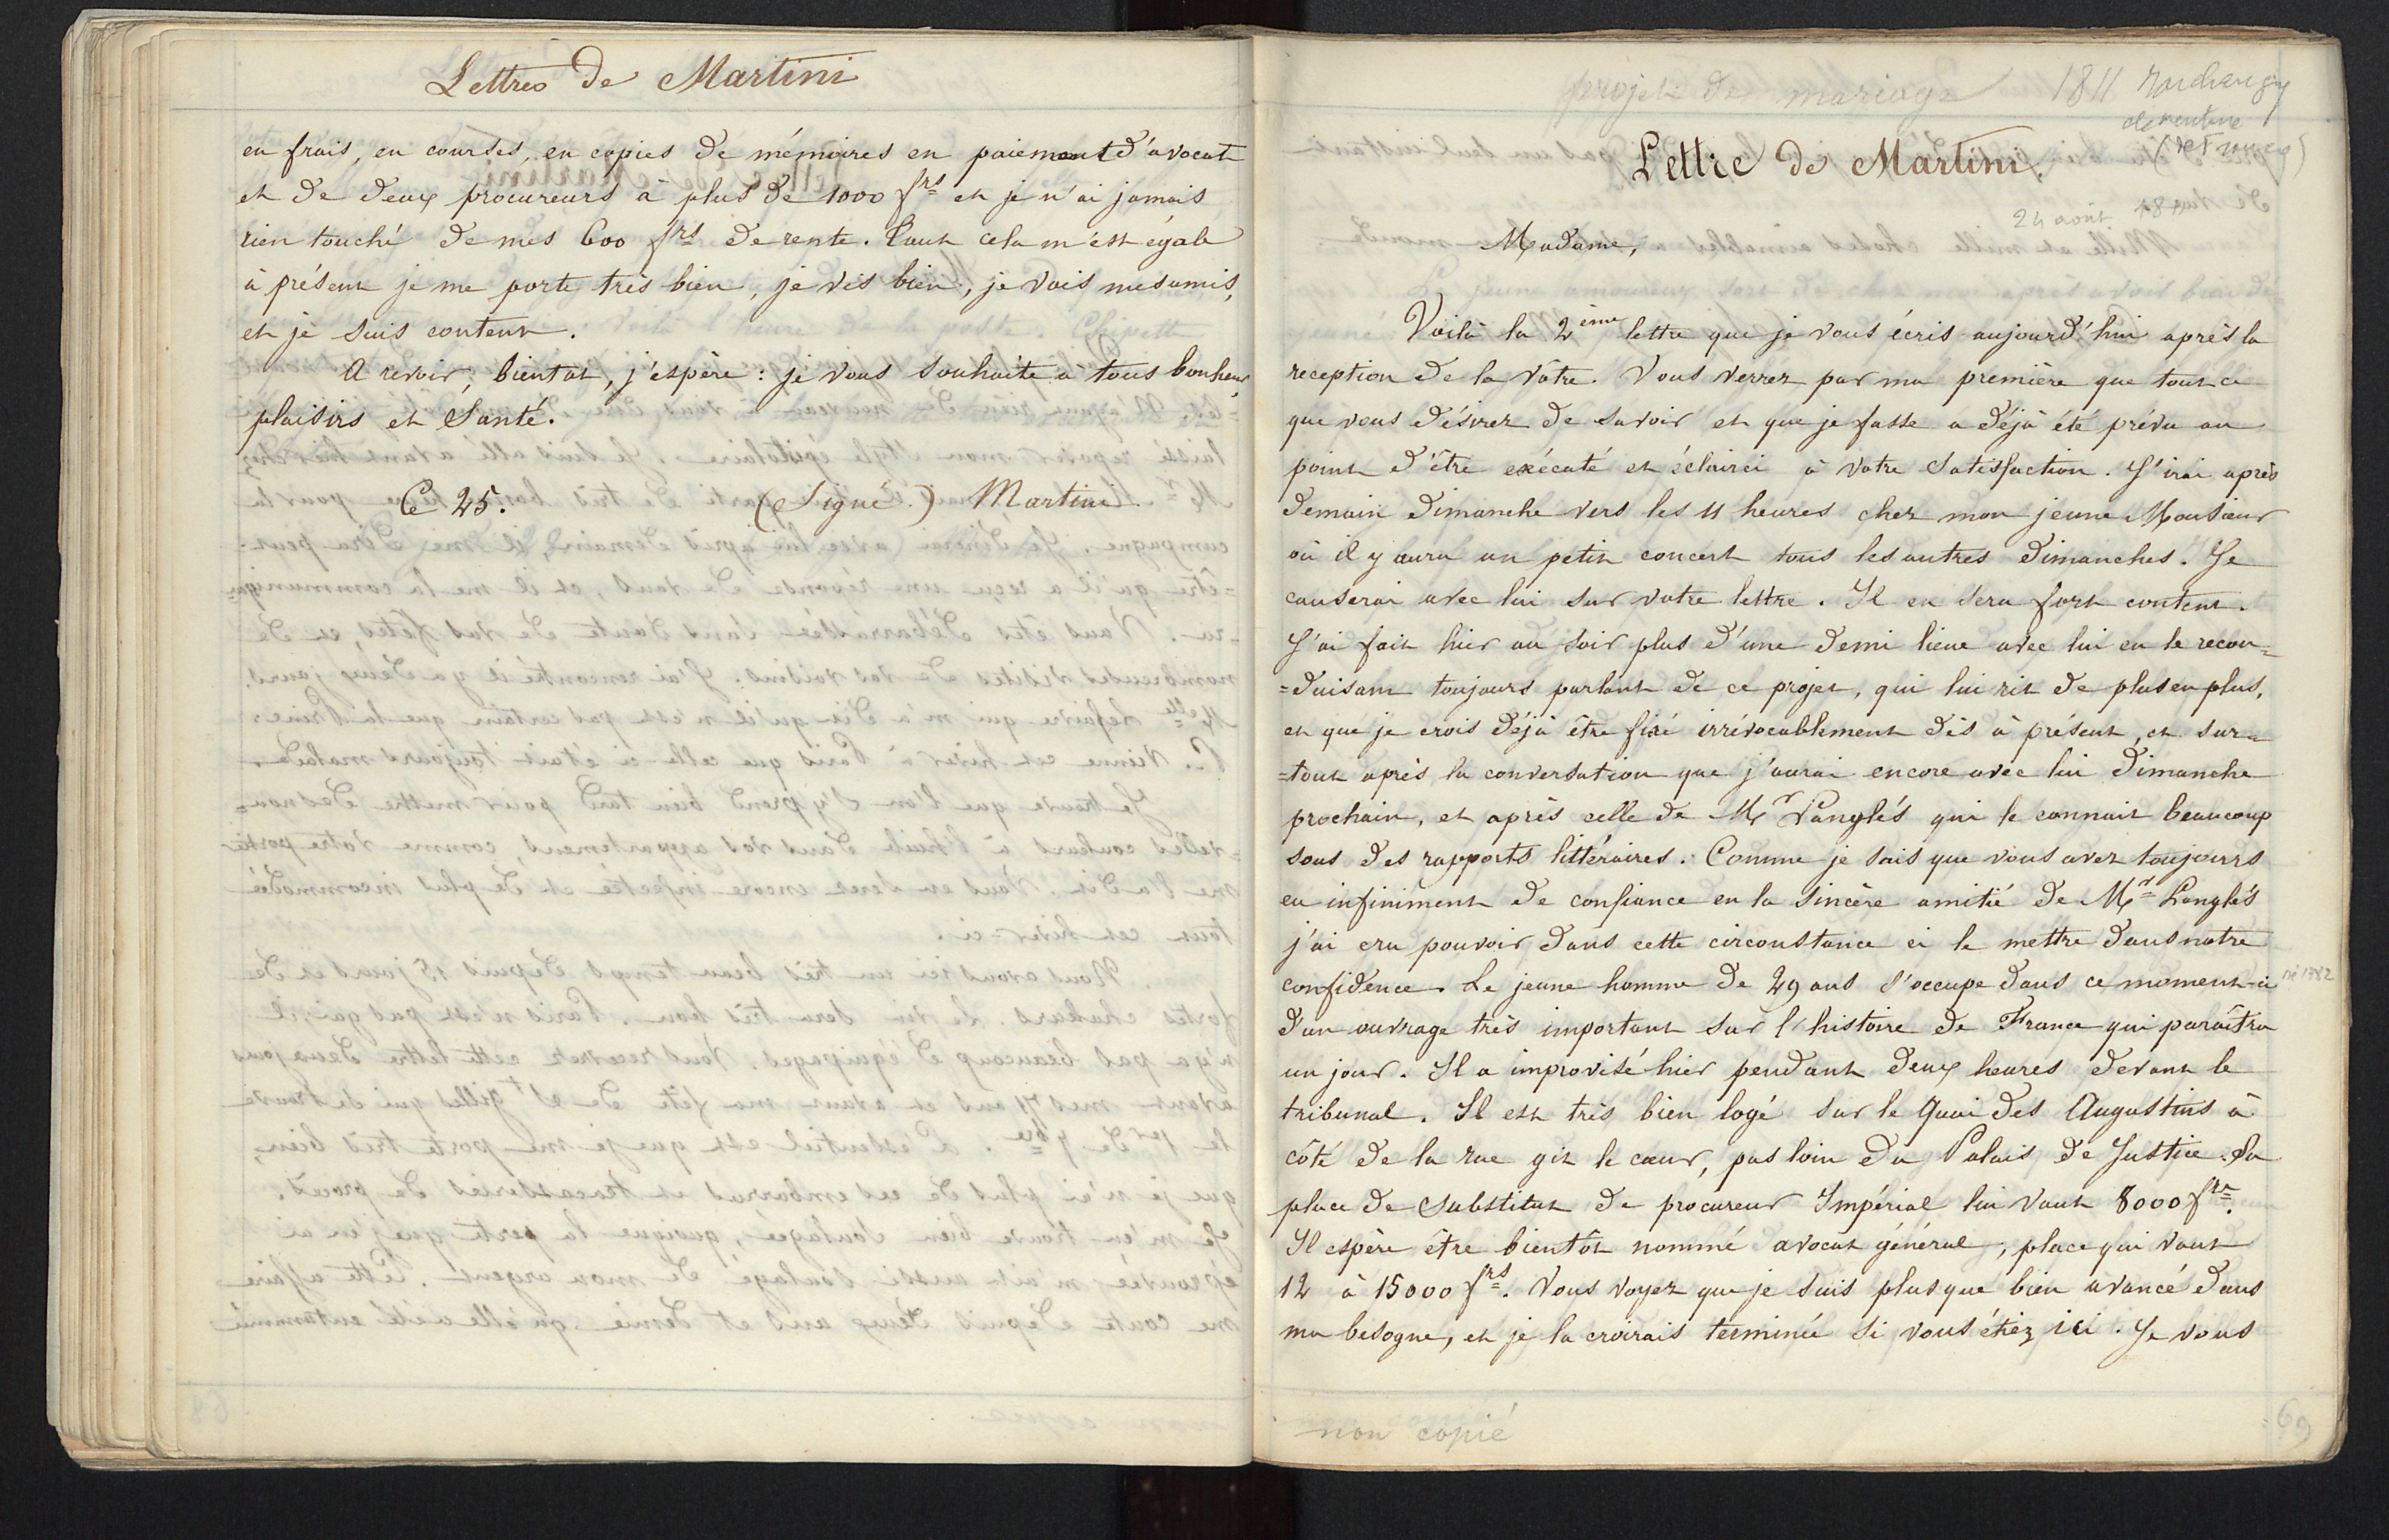 Lettres de Martini
en frais, en courses, en copies de mémoires en paiement d'avocat
et de deux procureurs à plus de 1000 frs et je n'ai jamais
rien touché de mes 600 frs de rente. Tout cela m'est égale
à présent je me porte très bien, je vis bien, je vois mes amis,
et je suis content.
A revoir, bientôt, j'espère : je vous souhaite à tous bonheur
plaisirs et Santé.
Ce 25. (Signé.) Martini
projet de mariage 1811 Marchangy
(de France)
Lettre de Martini.
24 août 1811
Madame,
Voilà la 2ème lettre que je vous écris aujourd'hui après la
reception de la vôtre. Vous verrez par ma première que tout ce
que vous désirez de savoir et que je fasse a déjà été prévu au
point d'être exécuté et éclairci à votre satisfaction. J'irai après
demain dimanche vers les 11 heures chez mon jeune Monsieur
où il y aura un petit concert tous les autres dimanches. Je
causerai avec lui sur votre lettre. Il en sera fort content.
J'ai fait hier au soir plus d'une demi lieue avec lui en le recon=
=duisant toujours parlant de ce projet, qui lui rit de plus en plus,
et que je crois déjà être fixé irrévocablement dès à présent, et sur=
=tout après la conversation que j'aurai encore avec lui dimanche
prochain, et après celle de Mr Langlés qui le connait beaucoup
sous des rapports littéraires. Comme je sais que vous avez toujours
eu infiniment de confiance en la sincère amitié de Mr Langlés
j'ai cru pouvoir dans cette circonstance ci le mettre dans notre
confidence. Le jeune homme de 29 ans s'occupe dans ce moment-ci né 1782
d'un ouvrage très important sur l'histoire de France qui paraîtra
un jour. Il a improvisé hier pendant deux heures devant le
tribunal. Il est très bien logé sur le Quai des Augustins à
côté de la rue git le cœur, pas loin du Palais de Justice. Sa
place de substitut de procureur Impérial lui vaut 8000 frs.
Il espère être bientôt nommé avocat général, place qui vaut
12 à 15000 frs. Vous voyez que je suis plus que bien avancé dans
ma besogne, et je la croirais terminée si vous étiez ici. Je vous
non copié
69